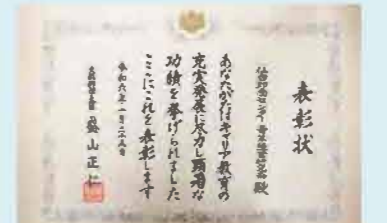 表彰状
殿
あなたがたはキャリア教育の
充実発展に尽力し顕著な
功績を挙げられました
ここにこれを表彰します
令和六年一月二十五日
文部科学大臣 盛山正仁